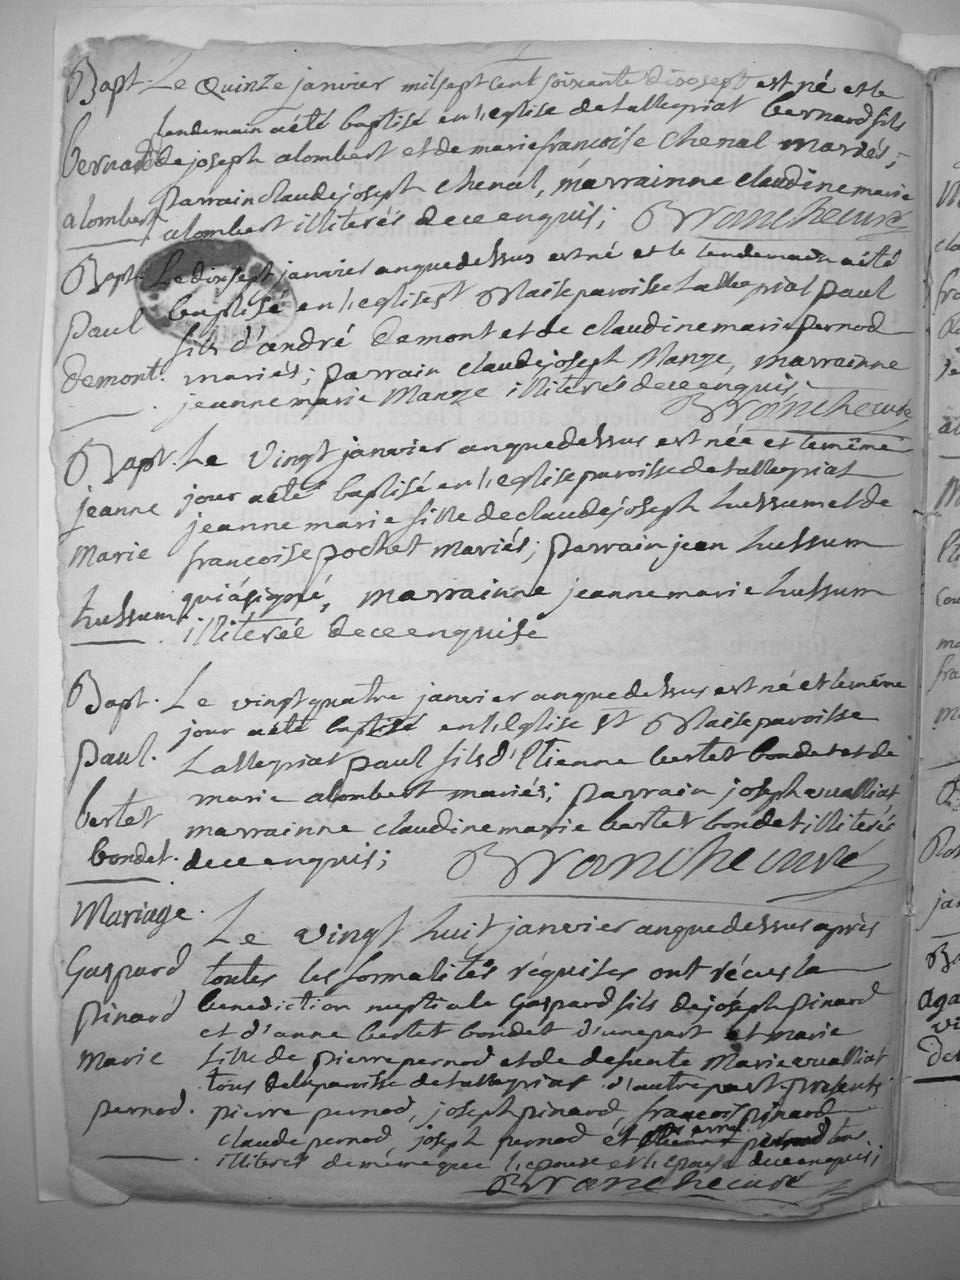 Bapt. Le quinze janvier mil sept cent soixante dix sept est né et le
lendemain a été baptisé en l'eglise de tallegriat bernard fils
bernard de joseph alombert et de marie francoise chenal mariés;
parrain claude joseph chenal, marrainne claudine marie
alombert alombert illiterés de ce enquis; Branche curé
Bapt. Le dix sept janvier an que dessus est né et le lendemain a été
baptisé en l'eglise st Blaise paroisse tallegriat paul
paul fils d'andré demont et de claudine marie pernod
demont. mariés; parrain claude joseph Mange, marrainne
jeanne marie Mange illiterés de ce enquis;
Branche curé
Bapt. Le vingt janvier an que dessus est née et le même
jeanne jour a été baptisé en l'eglise paroisse de tallegriat
jeanne marie fille de claude joseph hussum et de
Marie francoise pochet mariés; parrain jean hussum
hussum qui a signé, marrainne jeanne marie hussum
illiterée de ce enquise
Bapt. Le vingt quatre janvier an que dessus est né et le même
jour a été baptisé en l'eglise st Blaise paroisse
paul. tallegriat paul fils d'Etienne bertet bondet et de
bertet marie alombert mariés; parrain joseph
marrainne claudine marie bertet bondet illiterés
bondet. de ce enquis; Branche curé
Mariage.
Le vingt huit janvier an que dessus après
Gaspard toutes les formalités réquises ont récus la
pinard benediction nuptiale Gaspard fils de joseph pinard
et d'anne bertet bondet d'une part et marie
marie fille de pierre pernod et de defunte Marie
tous de la paroisse de tallegriat d'autre part. presents
pernod. pierre pernod, joseph pinard, francois pinard
claude pernod, joseph pernod et
illiterés de même que l'epoux et l'epouse de ce enquis;
Branche curé